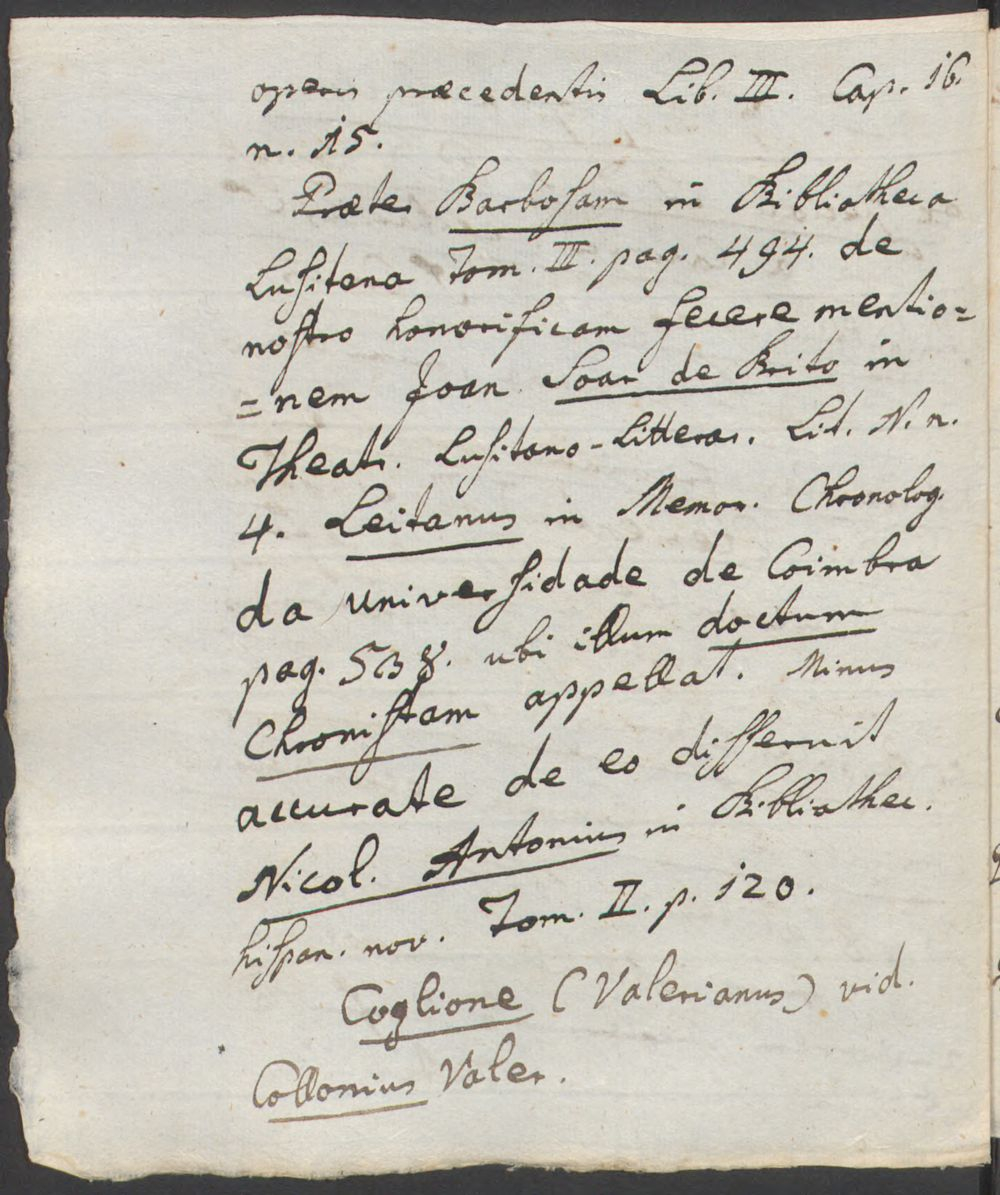 operis præcedentis Lib. III. Cap. 16.
n. 15.
Præter Barbosam in Bibliotheca
Lusitana Tom. III. pag. 494. de
nostro honorificam fecere mentio=
=nem Joan. Soar de Brito in
Theatr. Lusitano-Litterar. Lit. N. n.
4. Leitanus in Memor. Chronolog.
da universidade de Coimbra
pag. 538. ubi illum doctum
Chronistam appellat. Minus
accurate de eo disseruit
Nicol. Antonius in Bibliothec.
hispan. nov. Tom. II. p. 120.
Coglione (Valerianus) vid.
Collonius Valer.